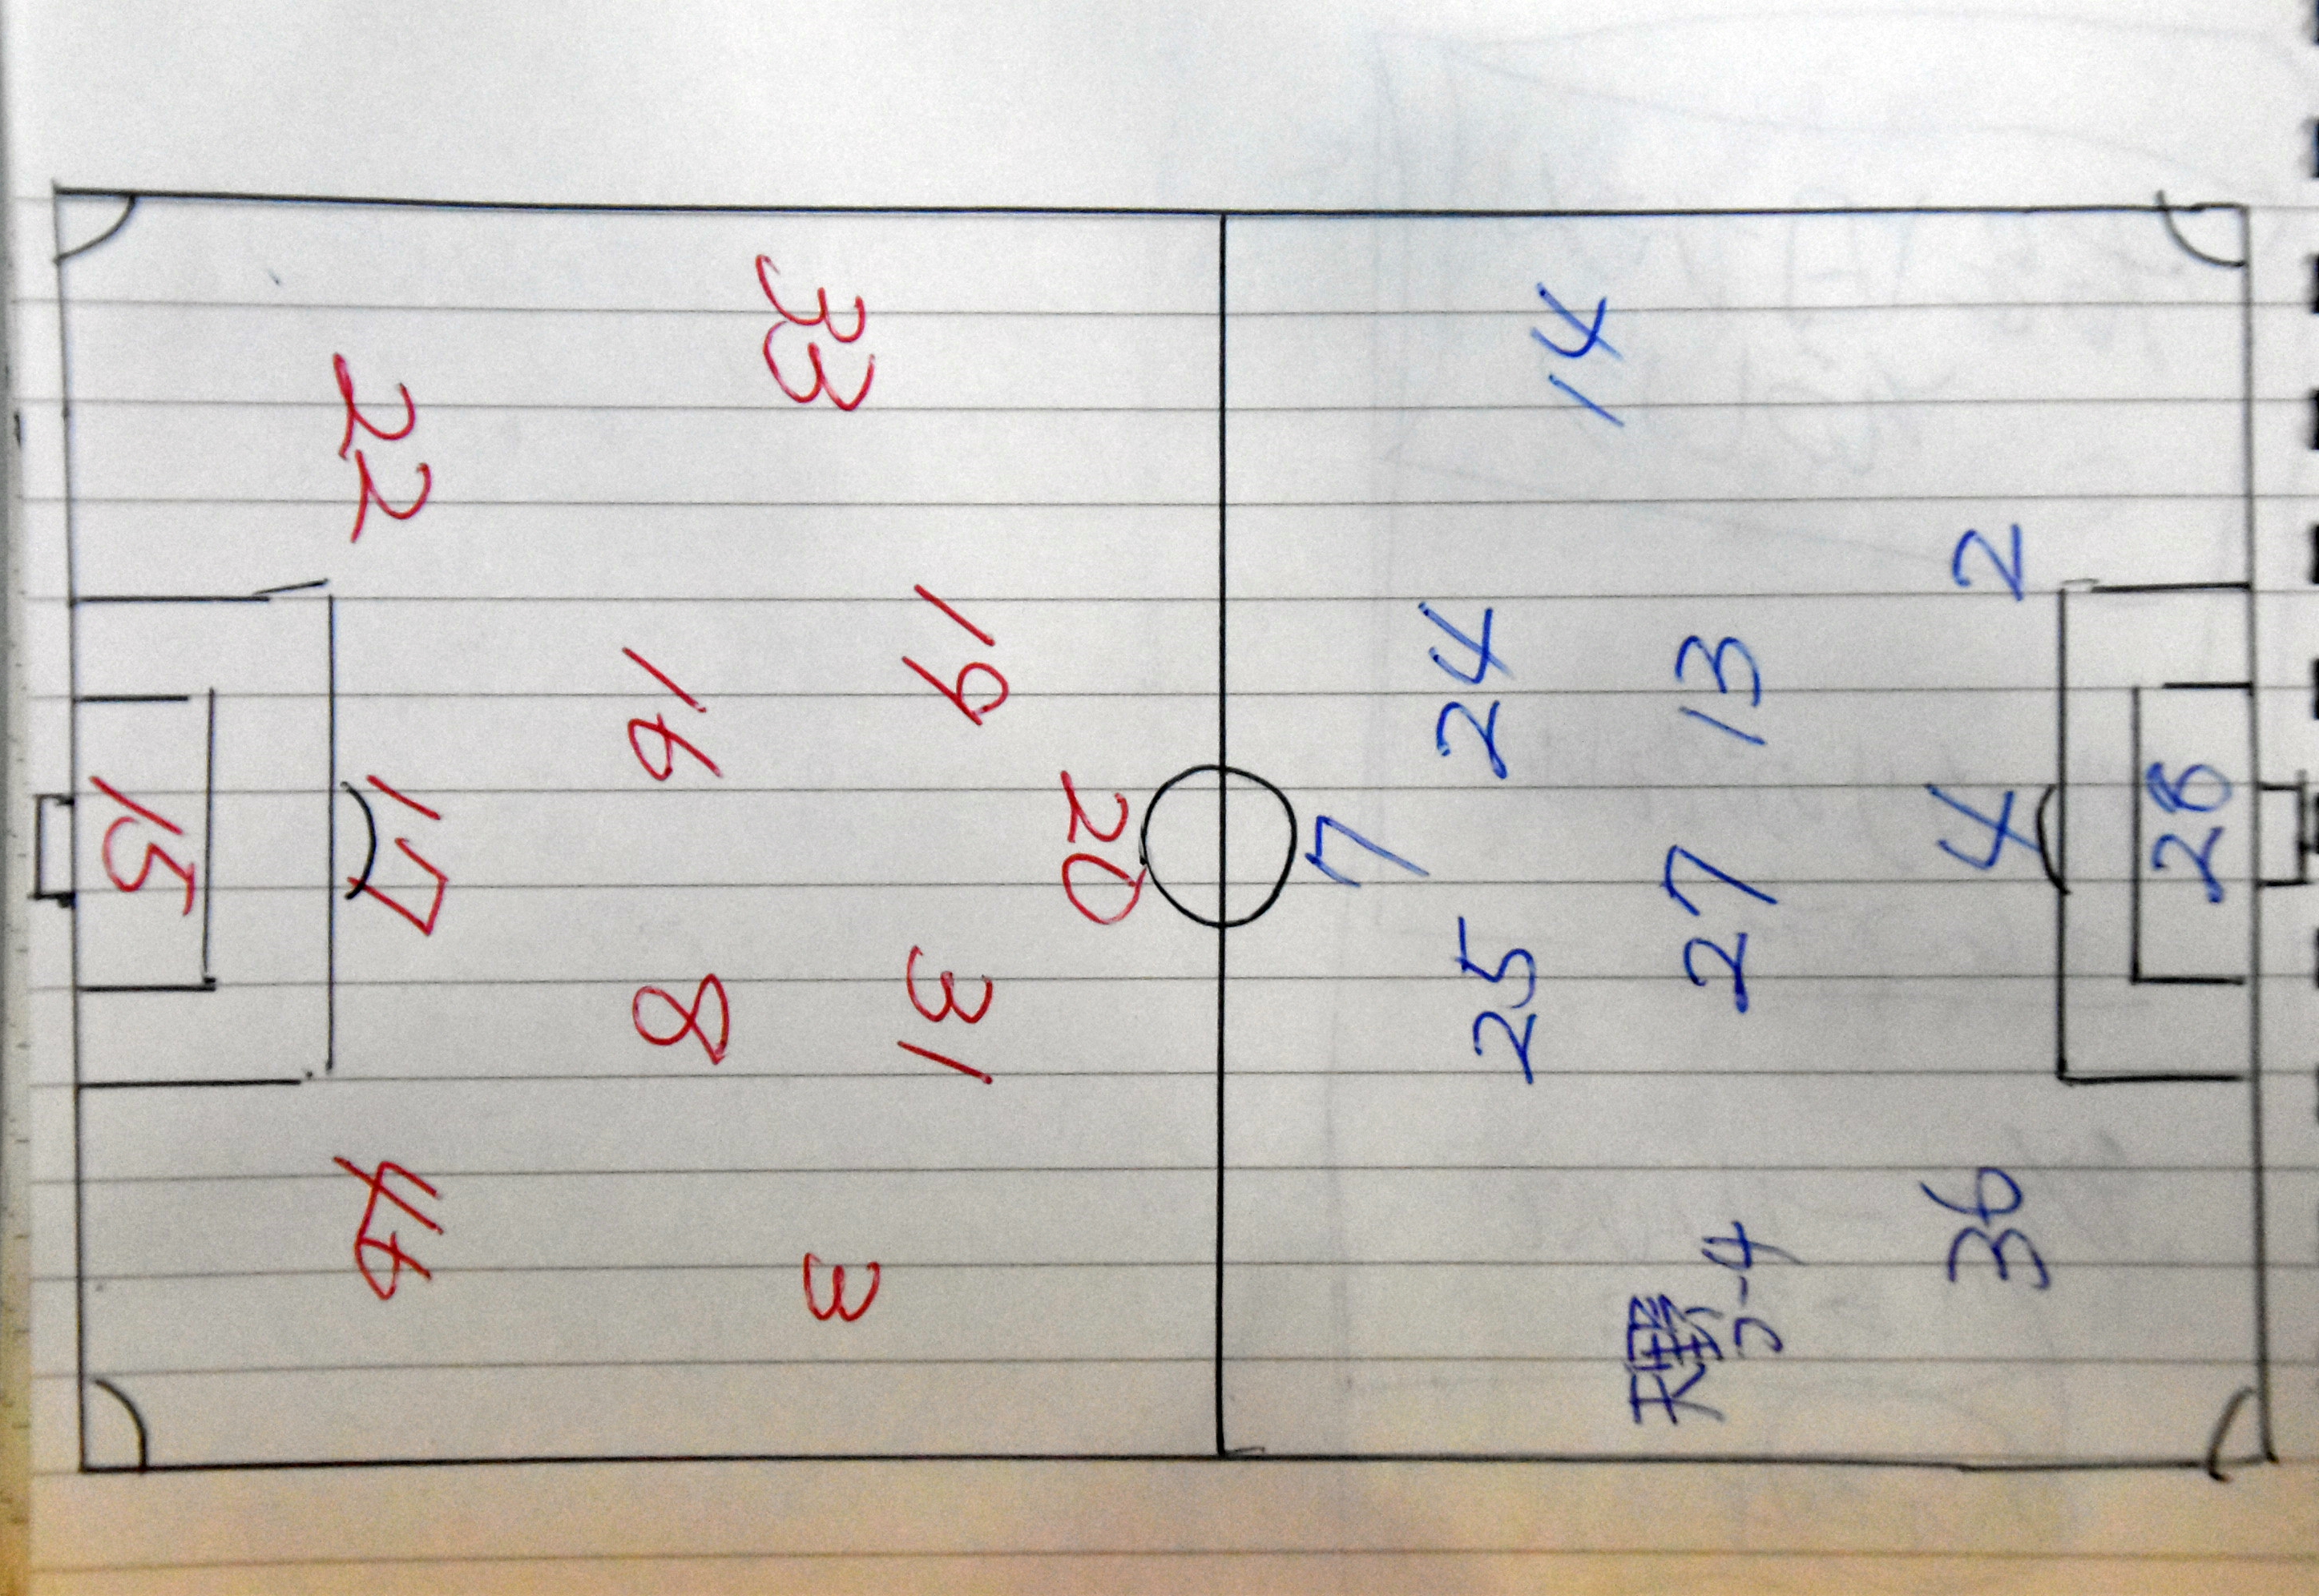 33
22
19
16
20
15
17
31
8
46
3
14
2
24
13
7
4
28
27
25
36
天野